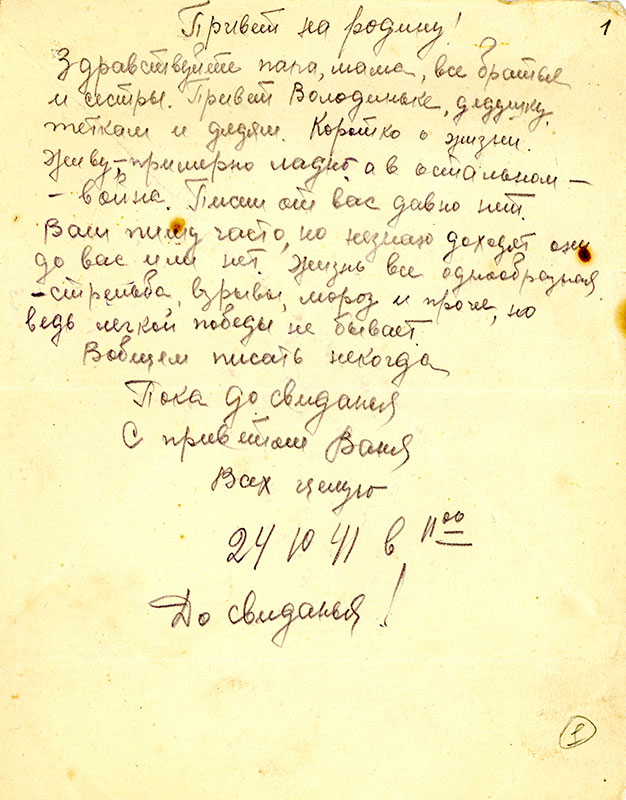 Привет на родину!
1
Здравствуйте папа, мама, все братья
и сестры. Привет Володиньке, дедушку,
теткам и дядям. Коротко о жизни.
Живу, примерно ладно, а в остальном –
– война. Писем от вас давно нет.
Вам пишу часто, но незнаю доходят они
до вас или нет. Жизнь все однообразная
– стрельба, взрывы, мороз и проче, но
ведь легкой победы не бывает.
Вобщем писать некогда
Пока до свиданья
С приветом Ваня
Вах целую
24 10 41 в 11 00
До свиданья!
1